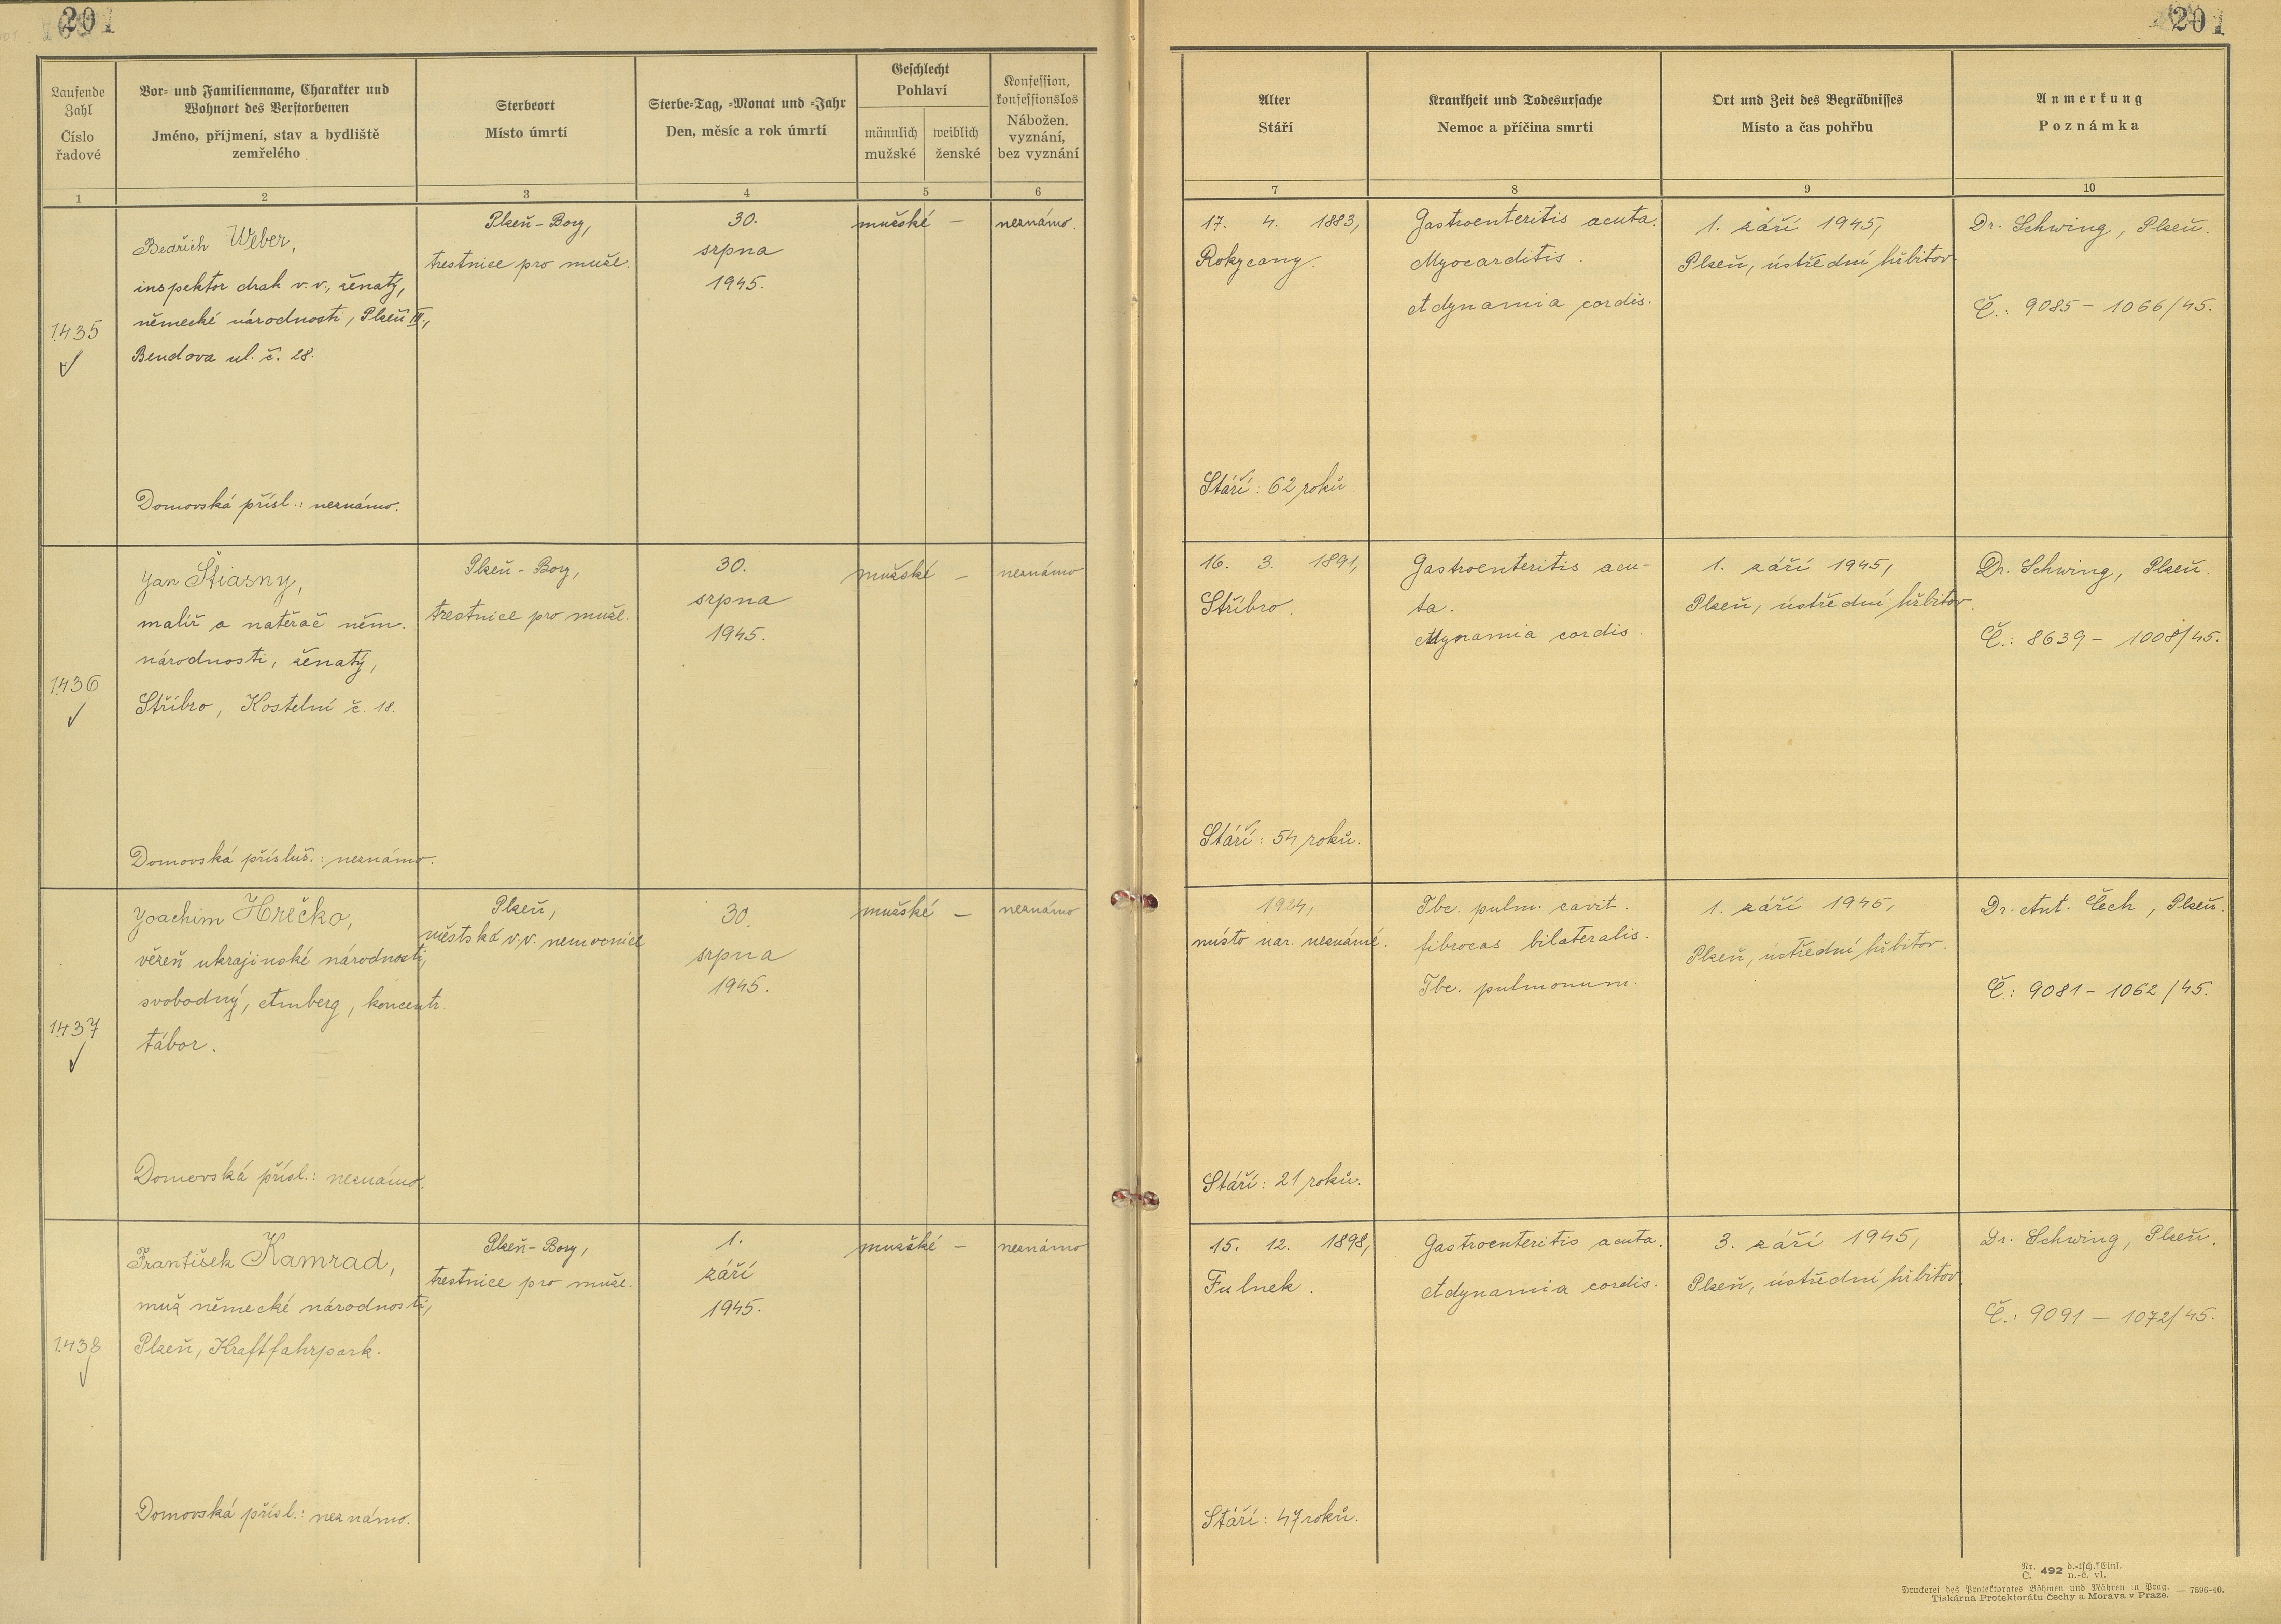 201
201
Laufende Zahl
Číslo řadové
Vor- und Familienname, Charakter und
Wohnort des Verstorbenen
Jméno, příjmení, stav a bydliště
zemřelého
Sterbeort
Místo úmrtí
Sterbe-Tag, -Monat und -Jahr
Den, měsíc a rok úmrtí
Geschlecht
Pohlaví
männlich
mužské
weiblich
ženské
Konfession,
konfessionslos
Nábožen.
vyznání,
bez vyznání
Alter
Stáří
Krankheit und Todesursache
Nemoc a příčina smrti
Ort und Zeit des Begräbnisses
Místo a čas pohřbu
Anmerkung
Poznámka
1 2 3 4 5 6 7 8 9 10
1435
Bedřich Weber,
inspektor drah v.v., ženatý,
německé národnosti, Plzeň III.,
Bendova ul. č. 28.
Domovská přísl.: neznámo.
Plzeň-Bory,
trestnice pro muže.
30.
srpna
1945.
mužské –
neznámo.
17. 4. 1883,
Rokycany.
Stáří: 62 roků.
Gastroenteritis acuta.
Myocarditis.
Adynamia cordis.
1. září 1945,
Plzeň, ústřední hřbitov
Dr. Schwing, Plzeň.
Č.: 9085 – 1066/45.
1436
Jan Štiasny,
malíř a natěrač něm.
národnosti, ženatý,
Stříbro, Kostelní č. 18.
Domovská přísluš.: neznámo.
Plzeň-Bory,
trestnice pro muže.
30.
srpna
1945.
mužské –
neznámo
16. 3. 1891,
Stříbro.
Stáří: 54 roků.
Gastroenteritis acu-
ta.
Adynamia cordis.
1. září 1945,
Plzeň, ústřední hřbitov.
Dr. Schwing, Plzeň.
Č.: 8639 – 1008/45.
1437
Joachim Hrečko,
vězeň ukrajinské národnosti,
svobodný, Amberg, koncentr.
tábor.
Domovská přísl.: neznámo.
Plzeň,
městská v.v. nemocnice
30.
srpna
1945.
mužské –
neznámo
1924,
místo nar. neznámé.
Stáří: 21 roků.
Tbc. pulm. cavit.
fibrocas. bilateralis.
Tbc. pulmonum.
1. září 1945,
Plzeň, ústřední hřbitov.
Dr. Ant. Čech, Plzeň.
Č.: 9081 – 1062/45.
1438
František Kamrad,
muž německé národnosti,
Plzeň, Kraftfahrpark.
Domovská přísl.: neznámo.
Plzeň-Bory,
trestnice pro muže.
1.
září
1945.
mužské –
neznámo
15. 12. 1898,
Fulnek.
Stáří: 47 roků.
Gastroenteritis acuta.
Adynamia cordis.
3. září 1945,
Plzeň, ústřední hřbitov
Dr. Schwing, Plzeň.
Č.: 9091 – 1072/45.
Nr. 492 d.-tsch. Einl.
Č. n.-č. vl.
Druckerei des Protektorates Böhmen und Mähren in Prag. — 7596-40.
Tiskárna Protektorátu Čechy a Morava v Praze.